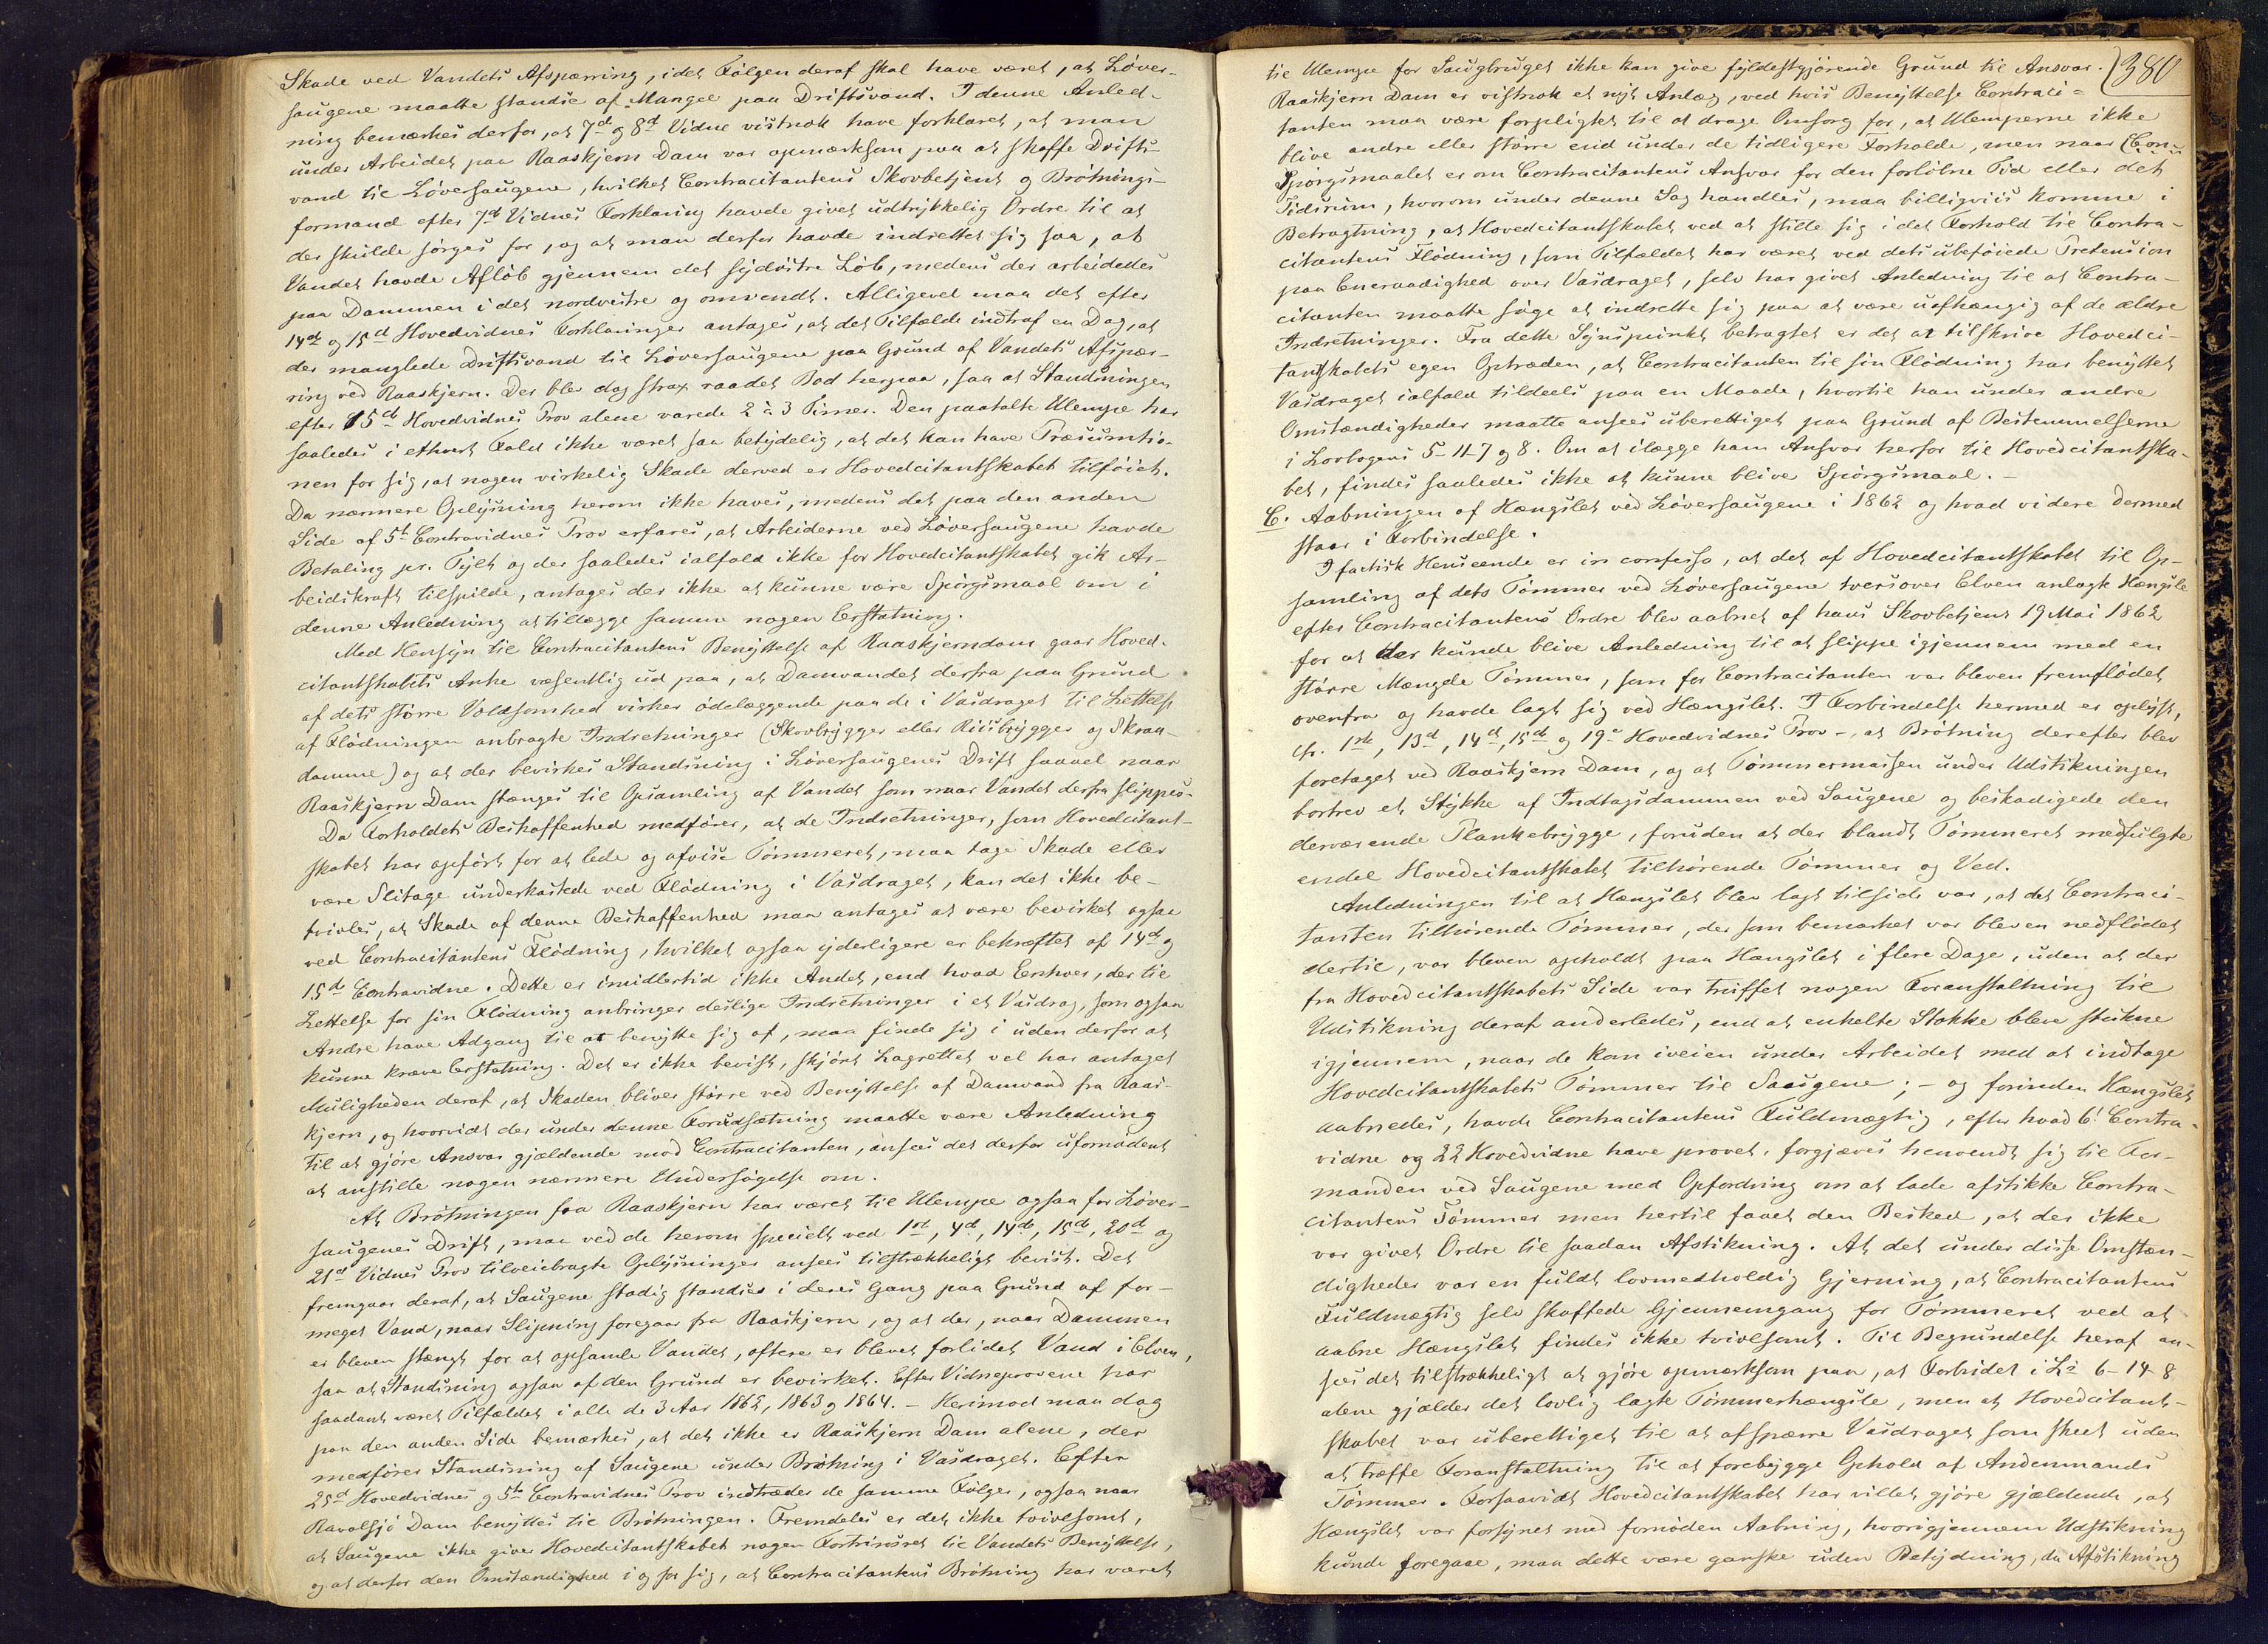 Skade ved Vandets Afspærring, idet Følgen deraf skal have været, at Løver-
saugene maatte standse af Mangel paa Driftsvand. I denne Anled-
ning bemærkes derfor, at 7de og 8de Vidne vistnok have forklaret, at man
under Arbeidet paa Raaskjern Dam var opmærksom paa at skaffe Drifts-
vand til Løversaugene, hvilket Contracitantens Skovbetjent og Brøtnings-
formand efter 7de Vidnes Forklaring havde givet udtrykkelig Ordre til at
der skulde sørges for, og at man derfor havde indrettet sig saa, at
Vandet havde Afløb gjennem det sydøstre Løb, medens der arbeidedes
paa Dammen i det nordvestre og omvendt. Alligevel maa det efter
14de og 15de Hovedvidnes Forklaringer antages, at det Tilfælde indtraf en Dag, at
der manglede Driftsvand til Løversaugene paa Grund af Vandets Afspær-
ring ved Raaskjern. Der blev dog strax raadet Bod herpaa, saa at Standsningen
efter 15de Hovedvidnes Prov alene varede 2 à 3 Timer. Den paatalte Ulempe har
saaledes i ethvert Fald ikke været saa betydelig, at det kan have Præsumtio-
nen for sig, at nogen virkelig Skade derved er Hovedcitantskabet tilføiet.
Da nærmere Oplysning herom ikke haves, medens det paa den anden
Side af 5te Contravidnes Prov erfares, at Arbeiderne ved Løversaugene havde
Betaling pr. Tylt og der saaledes ialfald ikke for Hovedcitantskabet gik Ar-
beidskraft tilspilde, antages der ikke at kunne være Spørgsmaal om i
denne Anledning at tillægge samme nogen Erstatning.
Med Hensyn til Contracitantens Benyttelse af Raaskjerndam gaar Hoved-
citantskabets Anke væsentlig ud paa, at Damvandet derfra paa Grund
af dets større Voldsomhed virker ødelæggende paa de i Vasdraget til Lettelse
af Flødningen anbragte Indretninger (Skovbrygger eller Riisbrygger og Skraa-
damme) og at der bevirkes Standsning i Løversaugenes Drift saavel naar
Raaskjern Dam stænges til Opsamling af Vandet som naar Vandet derfra slippes.
Da Forholdets Beskaffenhed medfører, at de Indretninger, som Hovedcitant-
skabet har opført for at lede og afvise Tømmeret, maa tage Skade eller
være Slitage underkastede ved Flødning i Vasdraget, kan det ikke be-
tvivles, at Skade af denne Beskaffenhed maa antages at være bevirket ogsaa
ved Contracitantens Flødning, hvilket ogsaa yderligere er bekræftet af 14de og
15de Contravidne. Dette er imidlertid ikke Andet, end hvad Enhver, der til
Lettelse for sin Flødning anbringer deslige Indretninger i et Vasdrag, som ogsaa
Andre have Adgang til at benytte sig af, maa finde sig i uden derfor at
kunne kræve Erstatning. Det er ikke bevist, skjønt Lagrettet vel har antaget
Muligheden deraf, at Skaden bliver større ved Benyttelse af Damvand fra Raas-
kjern, og hvorvidt der under denne Forudsætning maatte være Anledning
til at gjøre Ansvar gjældende mod Contracitanten, ansees det derfor ufornødent
at anstille nogen nærmere Undersøgelse om.
At Brøtningen fra Raaskjern har været til Ulempe ogsaa for Løver-
saugenes Drift, maa ved de herom specielt ved 1ste, 4de, 14de, 15de, 20de og
21de Vidnes Prov tilveiebragte Oplysninger ansees tilstrækkeligt bevist. Det
fremgaar deraf, at Saugene stadig standses i deres Gang paa Grund af for-
meget Vand, naar Slipning foregaar fra Raaskjern, og at der, naar Dammen
er bleven stængt for at opsamle Vandet, oftere er blevet forlidet Vand i Elven,
saa at Standsning ogsaa af den Grund er bevirket. Efter Vidneprovene har
saadant været Tilfældet i alle de 3 Aar 1862, 1863 og 1864. – Herimod maa dog
paa den anden Side bemærkes, at det ikke er Raaskjern Dam alene, der
medfører Standsning af Saugene under Brøtning i Vasdraget. Efter
25de Hovedvidnes og 5te Contravidnes Prov indtræder de samme Følger, ogsaa naar
Ravalsjø Dam benyttes til Brøtningen. Fremdeles er det ikke tvivlsomt,
at Saugene ikke giver Hovedcitantskabet nogen Fortrinsret til Vandets Benyttelse,
og at derfor den Omstændighed i og for sig, at Contracitantens Brøtning har været
380
til Ulempe for Saugbruget ikke kan give fyldestgjørende Grund til Ansvar.
Raaskjern Dam er vistnok et nyt Anlæg, ved hvis Benyttelse Contraci-
tanten maa være forpligtet til at drage Omsorg for, at Ulemperne ikke
blive andre eller større end under de tidligere Forholde, men naar
Spørgsmaalet er om Contracitantens Ansvar for den forløbne Tid eller det
Tidsrum, hvorom under denne Sag handles, maa billigviis komme i
Betragtning, at Hovedcitantskabet ved at stille sig i det Forhold til Contra-
citantens Flødning, som Tilfældet har været ved dets ubeføiede Pretension
paa Eneraadighed over Vasdraget, selv har givet Anledning til at Contra-
citanten maatte søge at indrette sig paa at være uafhængig af de ældre
Indretninger. Fra dette Synspunkt betragtet er det at tilskrive Hovedci-
tantskabets egen Optræden, at Contracitanten til sin Flødning har benyttet
Vasdraget ialfald tildeels paa en Maade, hvortil han under andre
Omstændigheder maatte ansees uberettiget paa Grund af Bestemmelserne
i Lovbogens 5-11-7 og 8. Om at ilægge ham Ansvar herfor til Hovedcitantska-
bet, findes saaledes ikke at kunne blive Spørgsmaal. –
C. Aabningen af Hængslet ved Løversaugene i 1862 og hvad videre dermed
staar i Forbindelse.
I factisk Henseende er in confesso, at det af Hovedcitantskabet til Op-
samling af dets Tømmer ved Løversaugene tversover Elven anlagte Hængsle
efter Contracitantens Ordre blev aabnet af hans Skovbetjent 19 Mai 1862
for at der kunde blive Anledning til at slippe igjennem med en
større Mængde Tømmer, som for Contracitanten var bleven fremflødet
ovenfra og havde lagt sig ved Hængslet. I Forbindelse hermed er oplyst,
cfr. 1ste, 13de, 14de, 15de og 19e Hovedvidnes Prov –, at Brøtning derefter blev
foretaget ved Raaskjern Dam, og at Tømmermassen under Udstikningen
bortrev et Stykke af Indtagsdammen ved Saugene og beskadigede den
derværende Plankebrygge, foruden at der blandt Tømmeret medfulgte
endel Hovedcitantskabet tilhørende Tømmer og Ved.
Anledningen til at Hængslet blev lagt tilside var, at det Contraci-
tanten tilhørende Tømmer, der som bemærket var bleven nedflødet
dertil, var bleven opholdt paa Hængslet i flere Dage, uden at der
fra Hovedcitantskabets Side var truffet nogen Foranstaltning til
Udstikning deraf anderledes, end at enkelte Stokke bleve stukne
igjennem, naar de kom iveien under Arbeidet med at indtage
Hovedcitantskabets Tømmer til Saugene; – og forinden Hængslet
aabnedes, havde Contracitantens Fuldmægtig, efter hvad 6. Contra-
vidne og 22 Hovedvidne have provet, forgjæves henvendt sig til For-
manden ved Saugene med Opfordring om at lade afstikke Contra-
citantens Tømmer men hertil faaet den Besked, at der ikke
var givet Ordre til saadan Afstikning. At det under disse Omstæn-
digheder var en fuldt lovmedholdig Gjerning, at Contracitantens
Fuldmægtig selv skaffede Gjennemgang for Tømmeret ved at
aabne Hængslet findes ikke tvivlsomt. Til Begrundelse heraf an-
sees det tilstrækkeligt at gjøre opmærksom paa, at Forbudet i Ls 6-14-8
alene gjælder det lovlig lagte Tømmerhængsle, men at Hovedcitant-
skabet var uberettiget til at afspærre Vasdraget som skeet uden
at træffe Foranstaltning til at forebygge Ophold af Andenmands
Tømmer. Forsaavidt Hovedcitantskabet har villet gjøre gjældende, at
Hængslet var forsynet med fornøden Aabning, hvorigjennem Udstikning
kunde foregaae, maa dette være ganske uden Betydning, da Afstikning